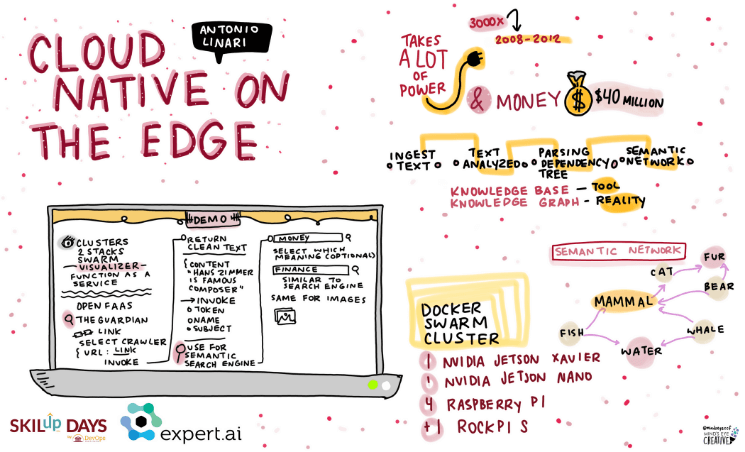 CLOUD
NATIVE ON
THE EDGE
ANTONIO
LINARI
3000x
2008-2012
TAKES
A LOT
OF
POWER
& MONEY
$
$40 MILLION
INGEST
TEXT
TEXT
ANALYZED
PARSING
DEPENDENCY
TREE
SEMANTIC
NETWORK
KNOWLEDGE BASE — TOOL
KNOWLEDGE GRAPH — REALITY
DEMO
CLUSTERS
2 STACKS
SWARM
VISUALIZER
FUNCTION AS A
SERVICE
OPEN FAAS
THE GUARDIAN
LINK
SELECT CRAWLER
{ URL: LINK
INVOKE
RETURN
CLEAN TEXT
{CONTENT
"HANS ZIMMER
IS FAMOUS
COMPOSER"
→ INVOKE
TOKEN
NAME
SUBJECT
USE FOR
SEMANTIC
SEARCH ENGINE
MONEY
SELECT WHICH
MEANING (OPTIONAL)
FINANCE
SIMILAR TO
SEARCH ENGINE
SAME FOR IMAGES
SEMANTIC NETWORK
FUR
CAT
BEAR
MAMMAL
FISH
WHALE
WATER
DOCKER
SWARM
CLUSTER
1 NVIDIA JETSON XAVIER
1 NVIDIA JETSON NANO
4 RASPBERRY PI
+1 ROCKPI S
SKILup DAYS
expert.ai
MIND'S EYE
CREATIVE